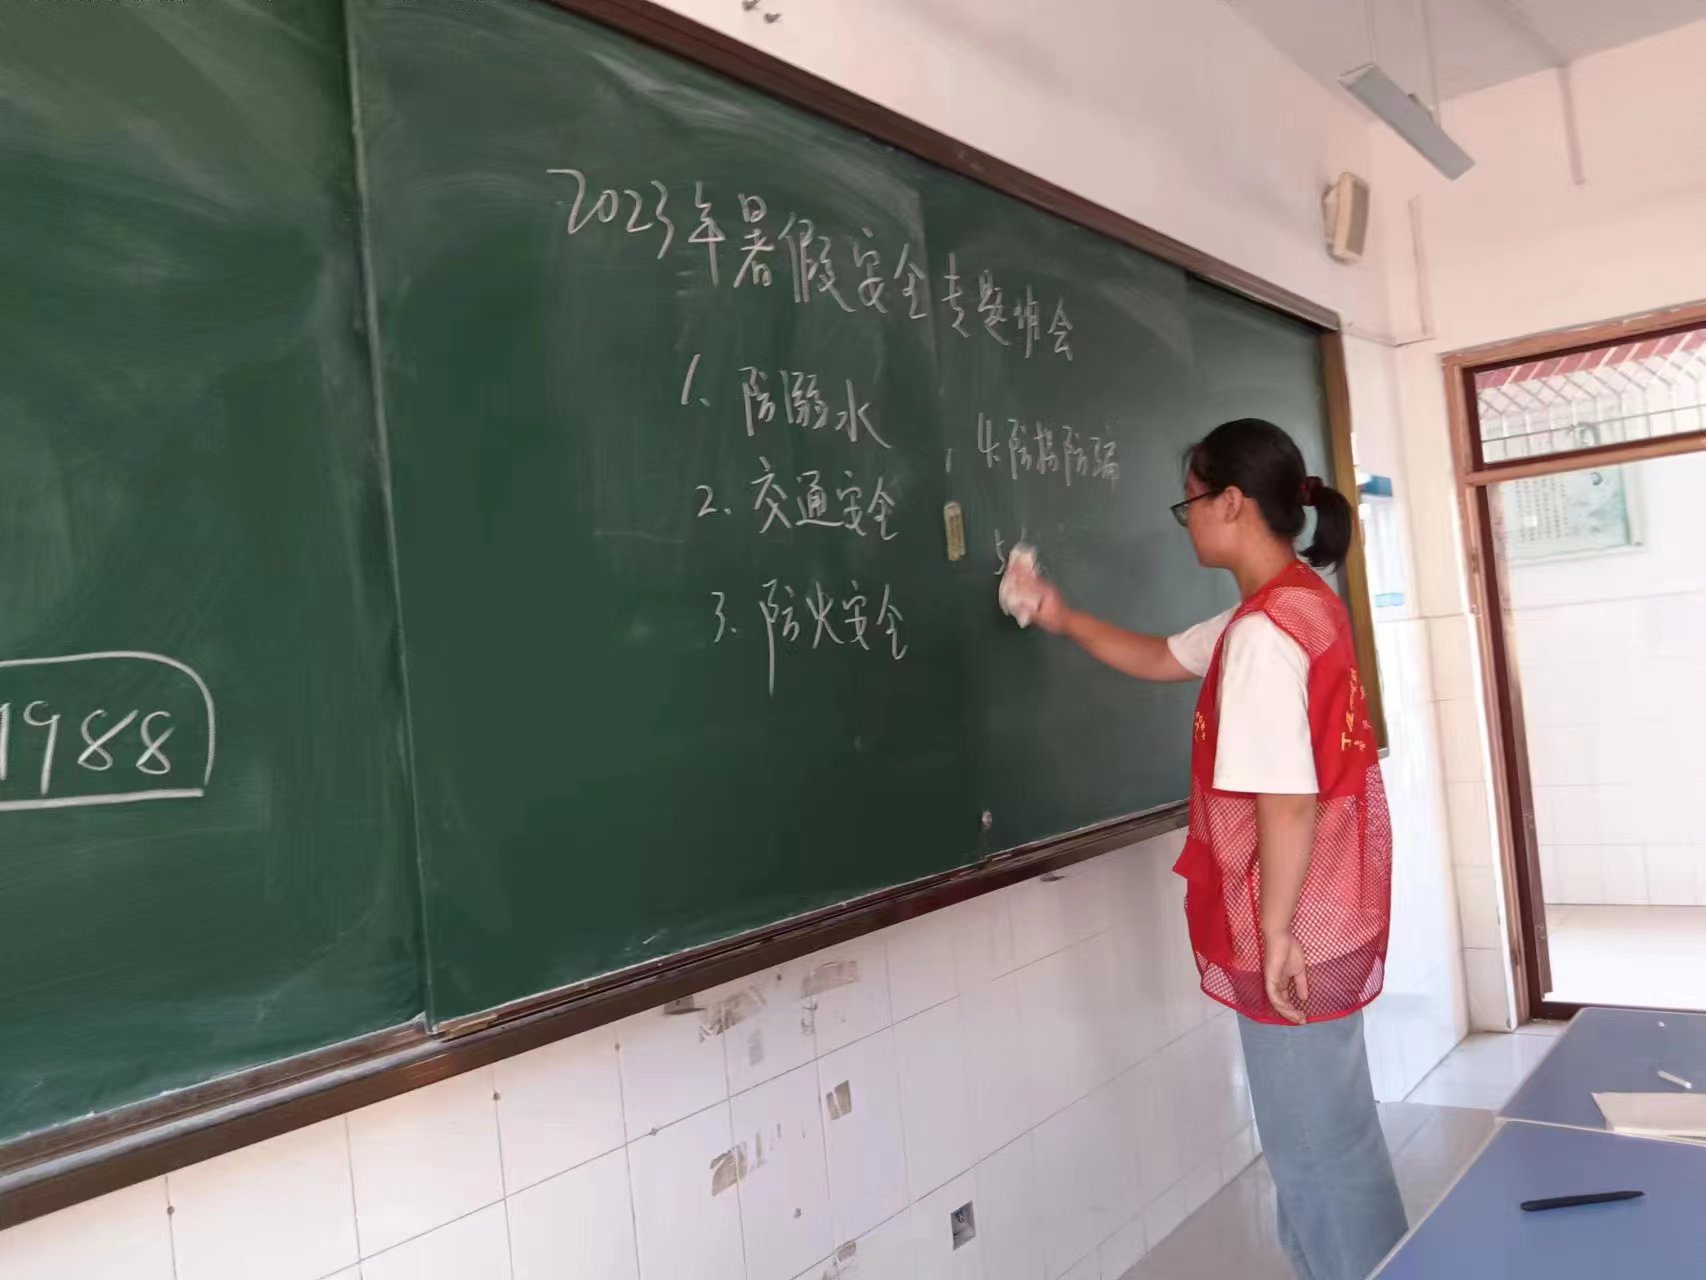 2023年暑假安全专题班会
1. 防溺水
2. 交通安全
3. 防火安全
4. 防拐防骗
5.
1988